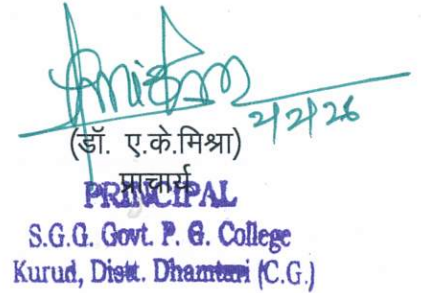 2/2/26
(डॉ. ए.के.मिश्रा)
प्राचार्य
PRINCIPAL
S.G.G. Govt. P. G. College
Kurud, Distt. Dhamtari (C.G.)